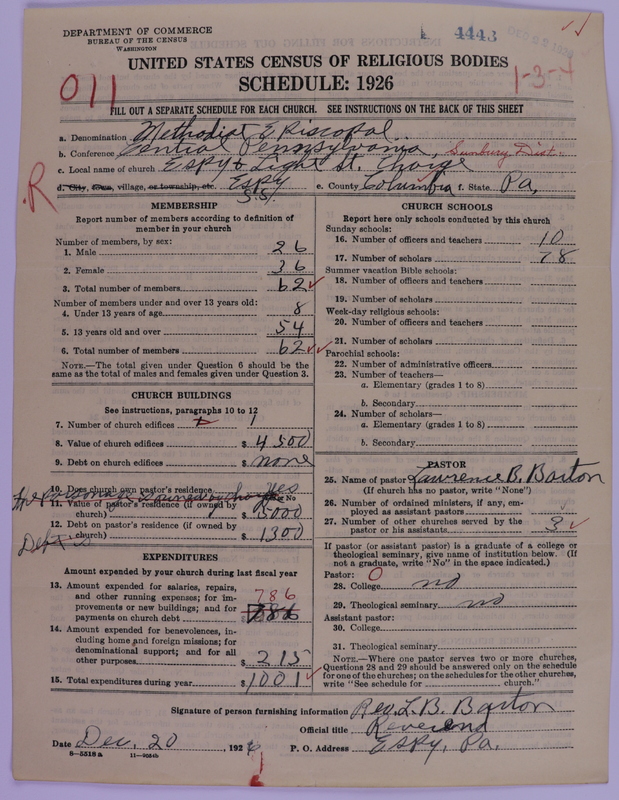 DEPARTMENT OF COMMERCE
BUREAU OF THE CENSUS
WASHINGTON
4443
UNITED STATES CENSUS OF RELIGIOUS BODIES
SCHEDULE: 1926
011
1-3-4
FILL OUT A SEPARATE SCHEDULE FOR EACH CHURCH. SEE INSTRUCTIONS ON THE BACK OF THIS SHEET
a. Denomination Methodist Episcopal
b. Conference Central Pennsylvania, Sunbury Dist.
c. Local name of church Espy & Light St. Charge
R
d. City, town, village, or township, etc. Espy e. County Columbia f. State Pa,
S.S.
MEMBERSHIP
Report number of members according to definition of member in your church
Number of members, by sex:
1. Male 26
2. Female 36
3. Total number of members 62
Number of members under and over 13 years old:
4. Under 13 years of age 8
5. 13 years old and over 54
6. Total number of members 62
NOTE.—The total given under Question 6 should be the same as the total of males and females given under Question 3.
CHURCH BUILDINGS
See instructions, paragraphs 10 to 12
7. Number of church edifices 1
8. Value of church edifices $ 4500
9. Debt on church edifices $ none
10. Does church own pastor's residence yes
Yes or No
11. Value of pastor's residence (if owned by church) $ 5000
12. Debt on pastor's residence (if owned by church) $ 1300
EXPENDITURES
Amount expended by your church during last fiscal year
13. Amount expended for salaries, repairs, and other running expenses; for improvements or new buildings; and for payments on church debt $ 786
14. Amount expended for benevolences, including home and foreign missions; for denominational support; and for all other purposes $ 215
15. Total expenditures during year $ 1001
CHURCH SCHOOLS
Report here only schools conducted by this church
Sunday schools:
16. Number of officers and teachers 10
17. Number of scholars 78
Summer vacation Bible schools:
18. Number of officers and teachers
19. Number of scholars
Week-day religious schools:
20. Number of officers and teachers
21. Number of scholars
Parochial schools:
22. Number of administrative officers
23. Number of teachers—
a. Elementary (grades 1 to 8)
b. Secondary
24. Number of scholars—
a. Elementary (grades 1 to 8)
b. Secondary
PASTOR
25. Name of pastor Lawrence B. Barton
(If church has no pastor, write "None")
26. Number of ordained ministers, if any, employed as assistant pastors
27. Number of other churches served by the pastor or his assistants 3
If pastor (or assistant pastor) is a graduate of a college or theological seminary, give name of institution below. (If not a graduate, write "No" in the space indicated.)
Pastor: 0
28. College no
29. Theological seminary no
Assistant pastor:
30. College
31. Theological seminary
NOTE.—Where one pastor serves two or more churches, Questions 28 and 29 should be answered only on the schedule for one of the churches; on the schedules for the other churches, write "See schedule for church."
Signature of person furnishing information Rev. L. B. Barton
Official title Reverend
Date Dec. 20, 1926 P. O. Address Espy, Pa.
8—5518a 11—9034b